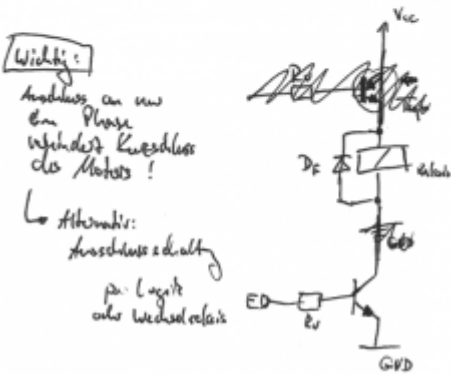 Wichtig:
Anschluss an nur
eine Phase
verhindert Kurzschluss
des Motors !
Alternativ:
Ausschlussschaltung
per Logik
oder Wechselrelais
Vcc
RV
DF
Relais
GND
ED
RV
GND